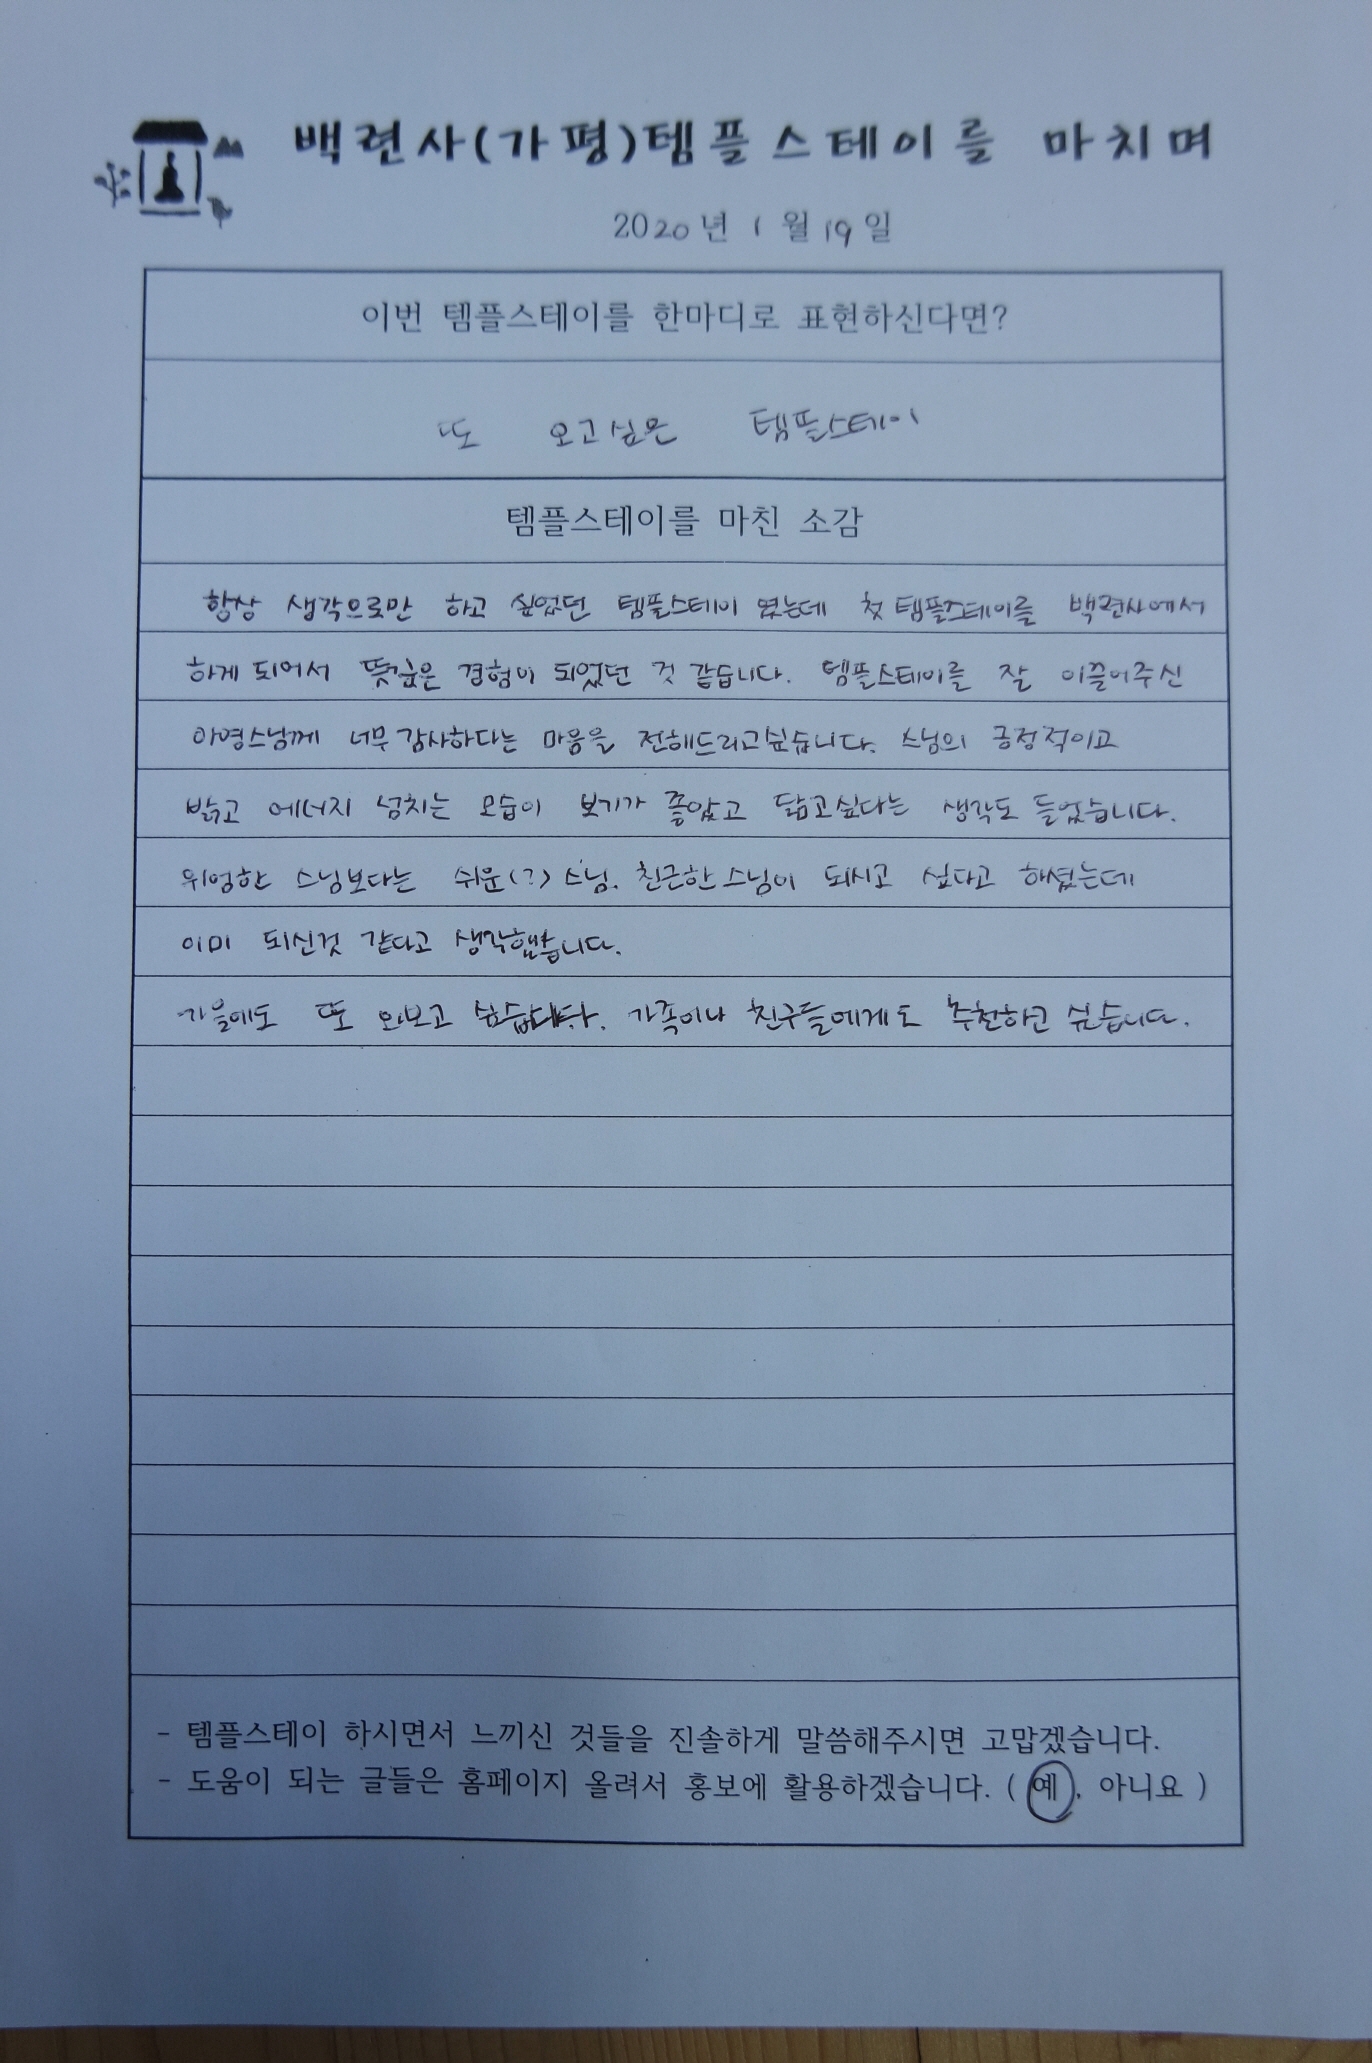 백련사(가평)템플스테이를 마치며
2020년 1월 19일
이번 템플스테이를 한마디로 표현하신다면?
또 오고싶은 템플스테이
템플스테이를 마친 소감
항상 생각으로만 하고 싶었던 템플스테이 였는데 첫 템플스테이를 백련사에서
하게 되어서 뜻깊은 경험이 되었던 것 같습니다. 템플스테이를 잘 이끌어주신
아영스님께 너무 감사하다는 마음을 전해드리고싶습니다. 스님의 긍정적이고
밝고 에너지 넘치는 모습이 보기가 좋았고 닮고싶다는 생각도 들었습니다.
위엄한 스님보다는 쉬운(?) 스님. 친근한 스님이 되시고 싶다고 하셨는데
이미 되신것 같다고 생각했습니다.
가을에도 또 와보고 싶습니다. 가족이나 친구들에게도 추천하고 싶습니다.
- 템플스테이 하시면서 느끼신 것들을 진솔하게 말씀해주시면 고맙겠습니다.
- 도움이 되는 글들은 홈페이지 올려서 홍보에 활용하겠습니다. ( 예, 아니요 )